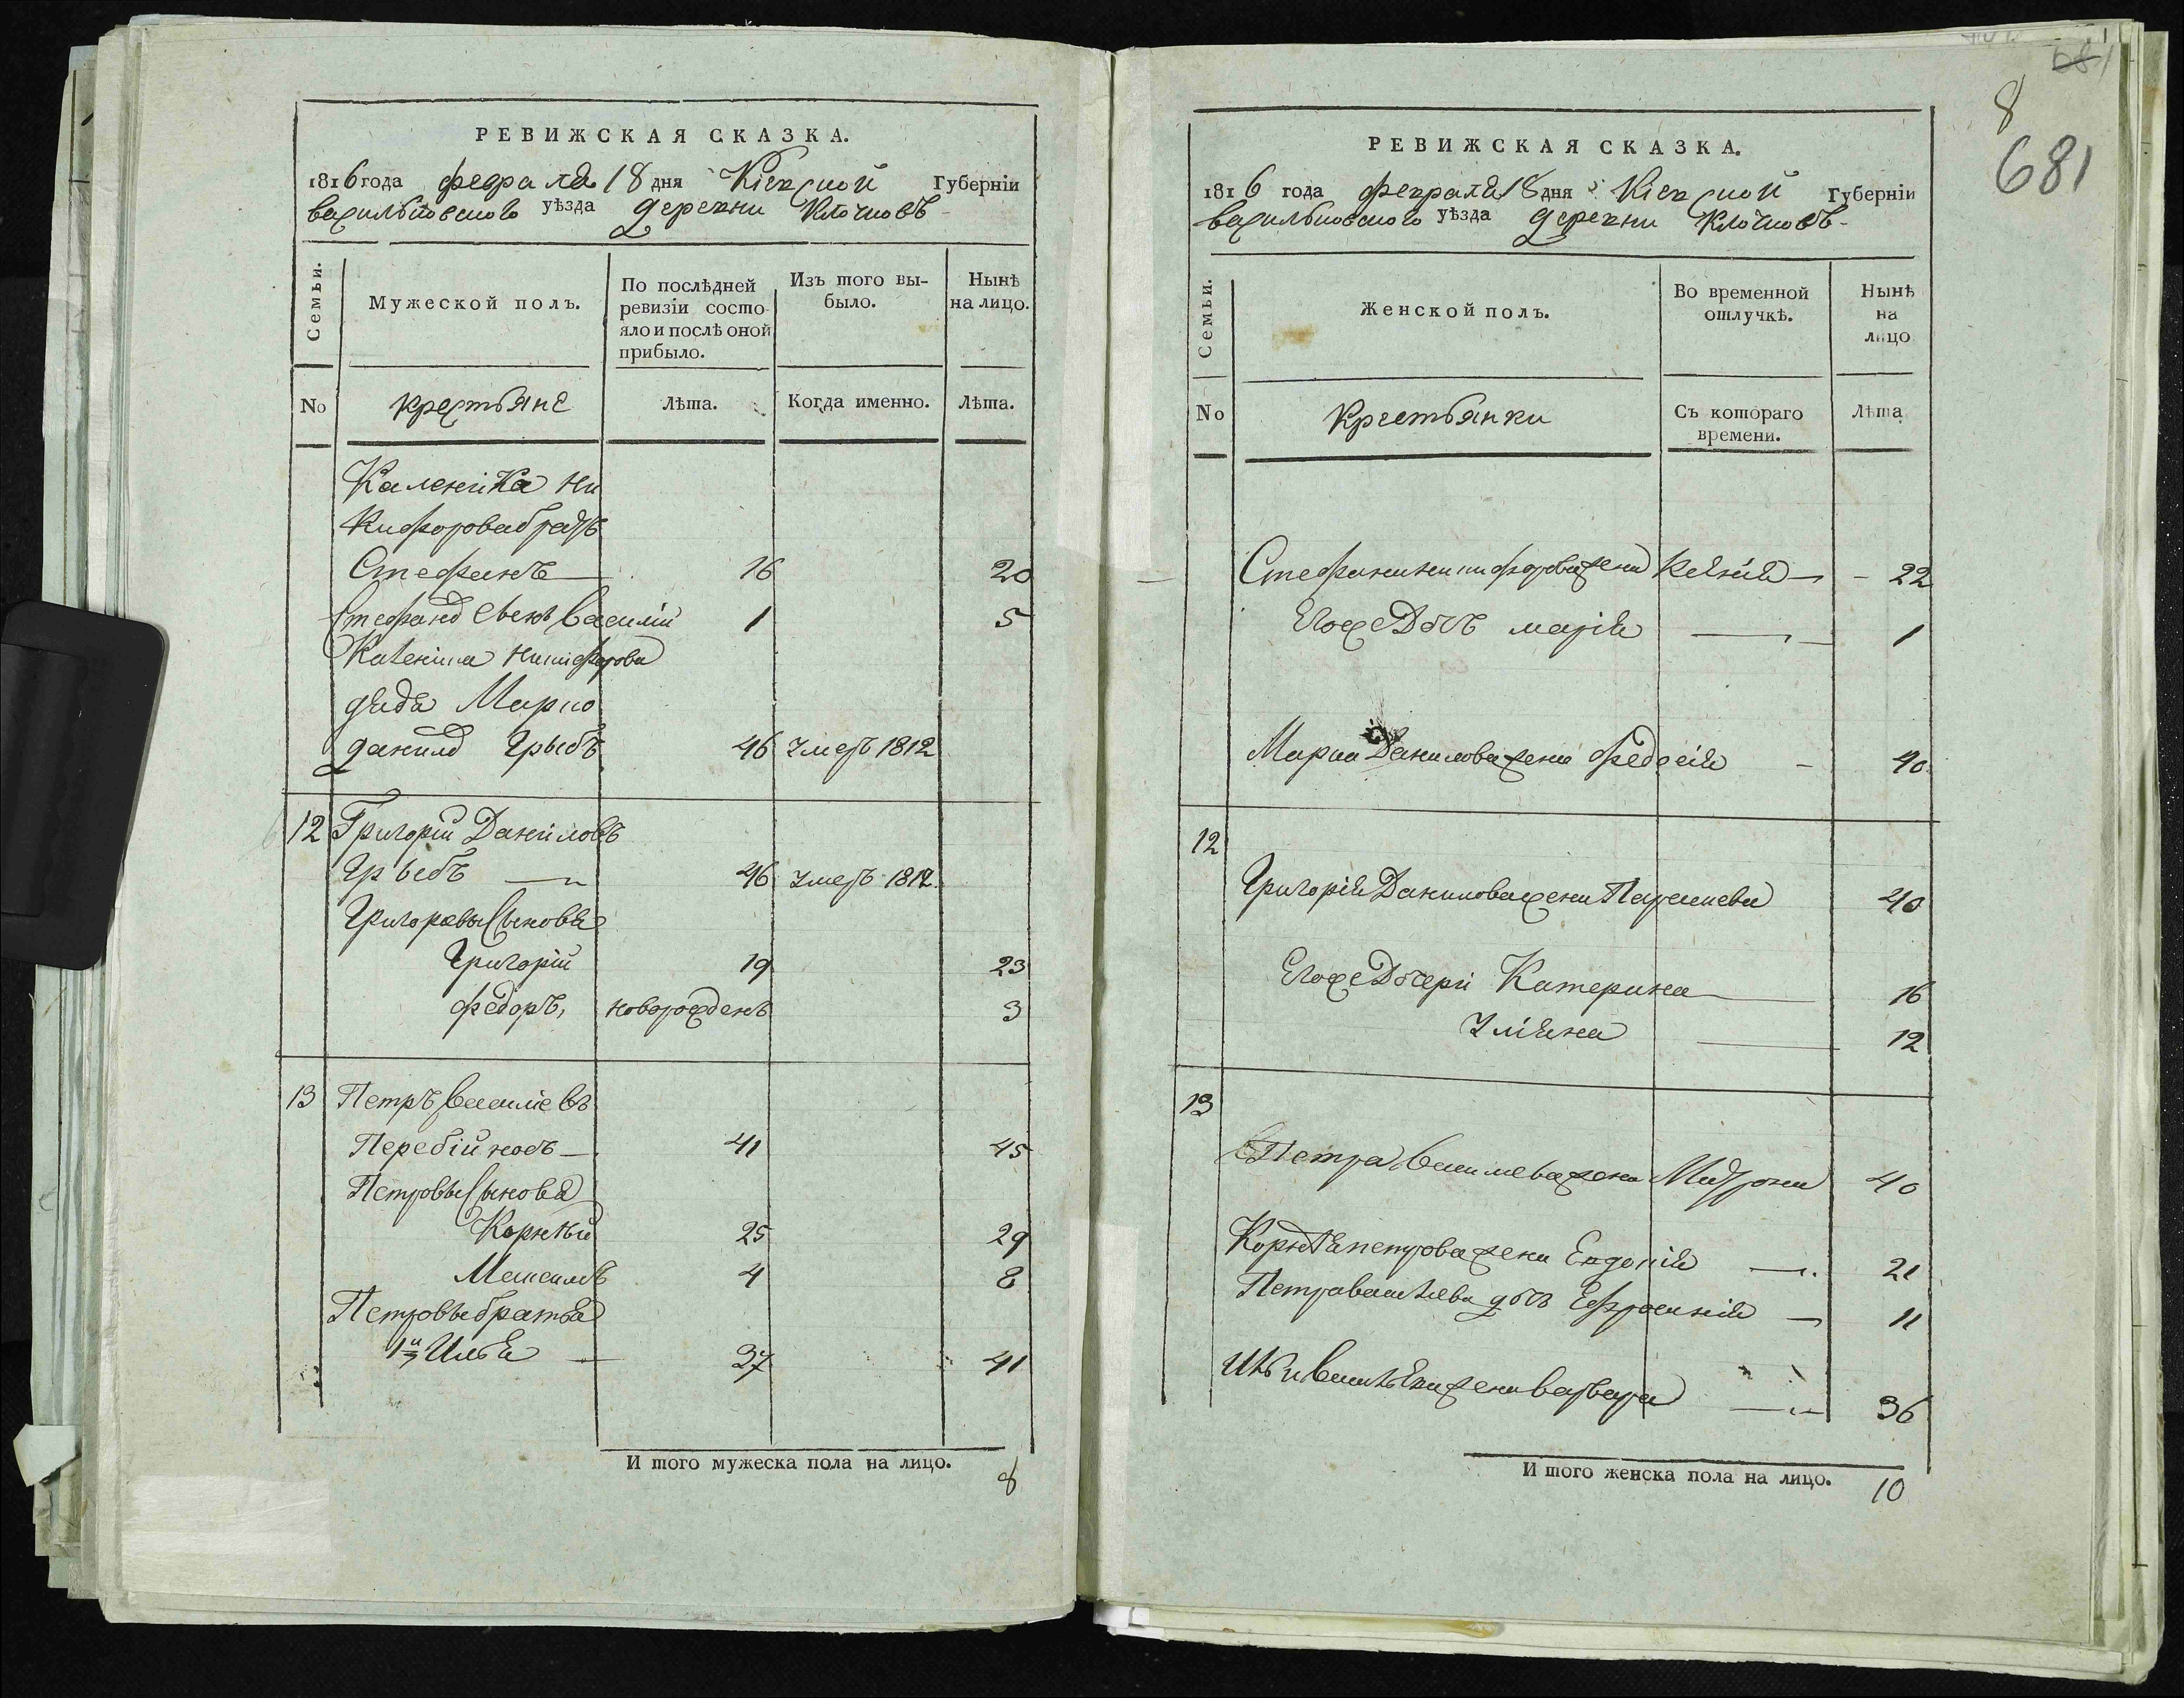 РЕВИЖСКАЯ СКАЗКА.
1816 года февраля 18 дня Кіевской Губерніи
васильковского уѣзда деревни Клочковъ
Семьи.
Мужеской полъ.
По послѣдней ревизіи состояло и послѣ оной прибыло.
Изъ того выбыло.
Нынѣ на лицо.
No крестьяне Лѣта. Когда именно. Лѣта.
Каленіка Ни
кифорова братъ
Стефанъ 16 20
Стефана сынъ Василій 1 5
Каленика Никифорова
дядя Марко
данило Грыбъ 46 умеръ 1812
12 Григорій Даниловъ
Грыбъ 46 умеръ 1812
Григоровы Сыновья
Григорій 19 23
федоръ, новорожденъ 3
13 Петръ Василіевъ
Перебійносъ 41 45
Петровы Сыновья
Корнѣй 25 29
Максимъ 4 8
Петровы братья
1й Илья 37 41
И того мужеска пола на лицо. 8
681
8
681
РЕВИЖСКАЯ СКАЗКА.
1816 года февраля 18 дня Кіевской Губерніи
васильковского уѣзда деревни Клочковъ
Семьи.
Женской полъ.
Во временной отлучкѣ.
Нынѣ на лицо
No Крестьянки Съ котораго времени. Лѣта
Стефана никифорова жена Ксенія 22
Егоже Дочь марія 1
Марка Данилова жена Федосія 40
12
Григорія Данилова жена Параскева 40
Егоже Дочери Катерина 16
Уліяна 12
13
Петра Василева жена Матрона 40
Корнѣя петрова жена Евдокія 21
Петра васілева дочь Ефросинія 11
Ильи Васильева жена варвара 36
И того женска пола на лицо. 10